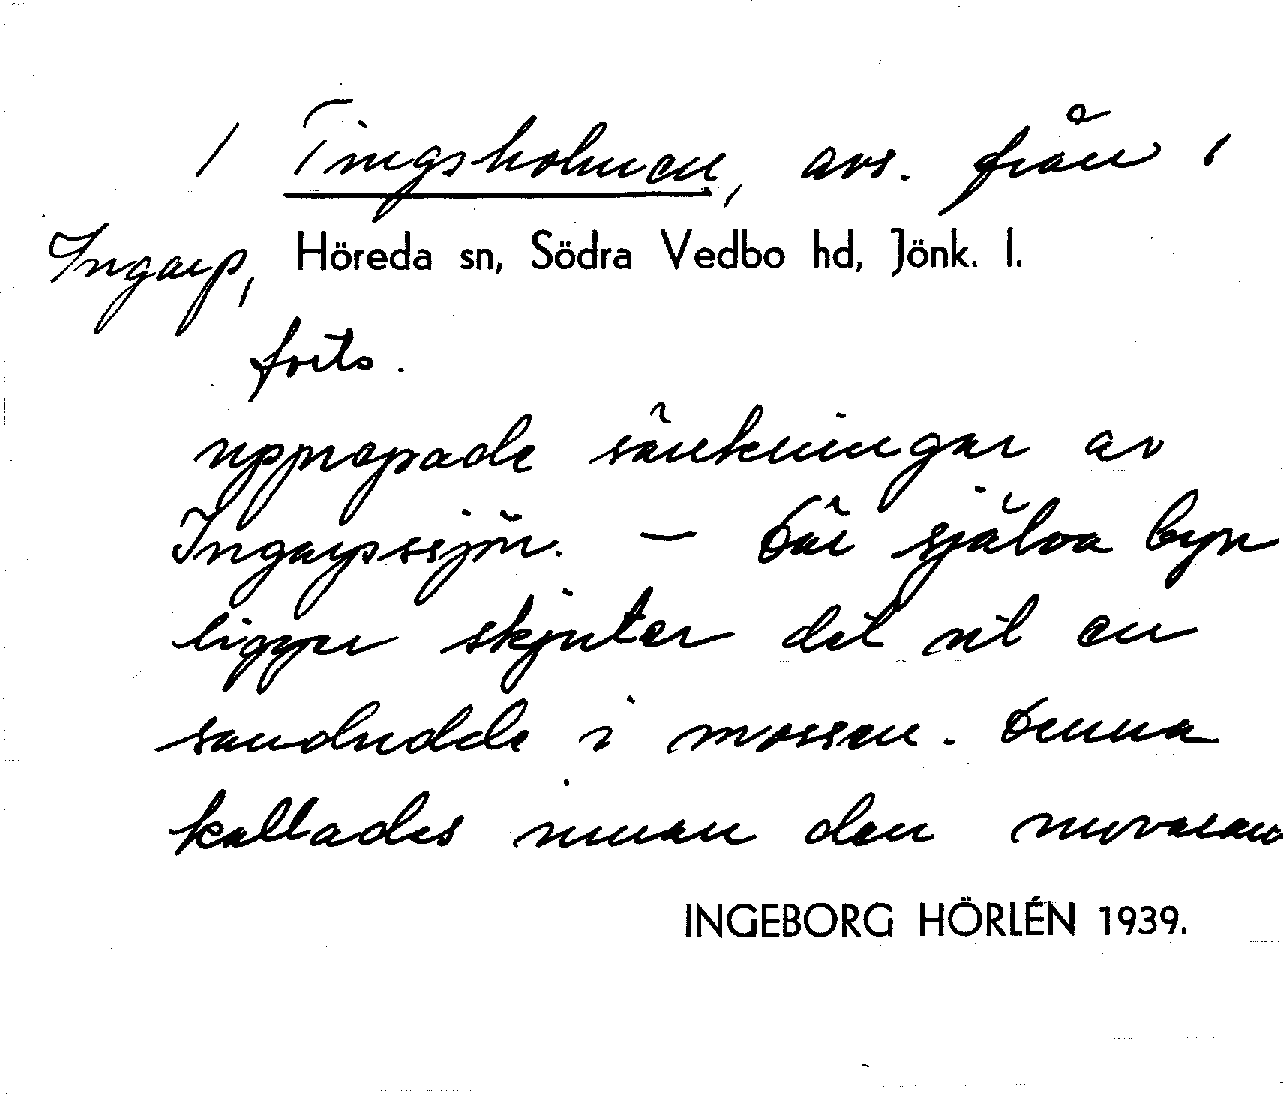 / Tingsholmen, avs. från /
Ingarp, Höreda sn, Södra Vedbo hd, Jönk. l.
forts.
upprepade sänkningar av
Ingarpssjön. – Där själva byn
ligger skjuter det ut en
sandudde i mossen. Denna
kallades innan den nuvaran
INGEBORG HÖRLÉN 1939.